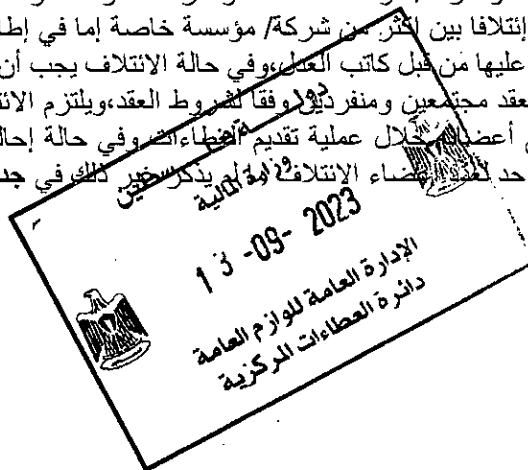 إئتلافا بين اكثر من شركة/ مؤسسة خاصة إما في إطا
عليها من قبل كاتب العدل،وفي حالة الائتلاف يجب أن
عقد مجتمعين ومنفردين وفقا لشروط العقد،ويلتزم الائت
أعضائه خلال عملية تقديم العطاءات وفي حالة إحال
أعضاء الائتلاف ما لم يذكر غير ذلك في جد
دولة فلسطين
وزارة المالية
13 -09- 2023
الإدارة العامة للوازم العامة
دائرة العطاءات المركزية